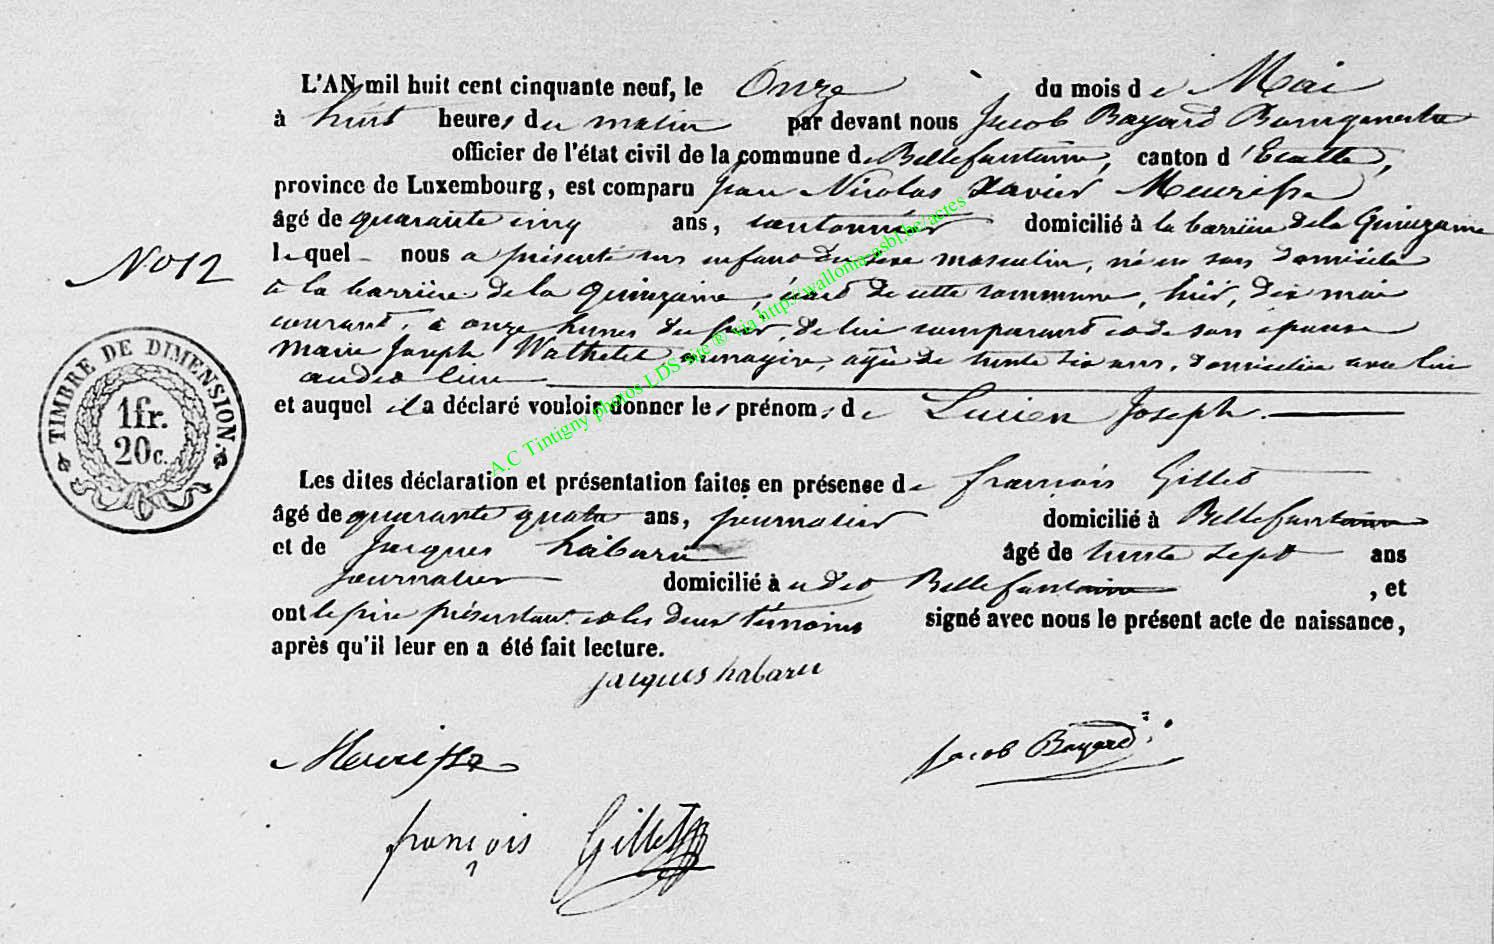 L'AN mil huit cent cinquante neuf, le Onze du mois de Mai
à huit heures du matin par devant nous Jacob Bayard Bourgmestre
officier de l'état civil de la commune de Bellefontaine, canton d'Etalle,
province de Luxembourg, est comparu Jean Nicolas Xavier Meurisse
âgé de quarante cinq ans, cantonnier domicilié à la barrière de la Quinzaine
No 12
lequel nous a présenté un enfant du sexe masculin, né en son domicile
à la barrière de la Quinzaine, écart de cette commune, hier, dix mai
courant, à onze heures du soir, de lui comparant et de son épouse
Marie Joseph Wathelet, ménagère, agée de trente six ans, domiciliée avec lui
audit lieu
et auquel il a déclaré vouloir donner les prénoms de Lucien Joseph.
TIMBRE DE DIMENSION.
1fr.
20c.
Les dites déclaration et présentation faites en présense de françois Gillet
âgé de quarante quatre ans, journalier domicilié à Bellefontaine
et de Jacques habaru âgé de trente sept ans
journalier domicilié audit Bellefontaine, et
ont le père présentant et les deux témoins signé avec nous le présent acte de naissance,
après qu'il leur en a été fait lecture.
jacques habaru
Meurisse
Jacob Bayard
françois Gillet
A.C Tintigny photos LDS site ® via http://wallonia-asbl.be/actes